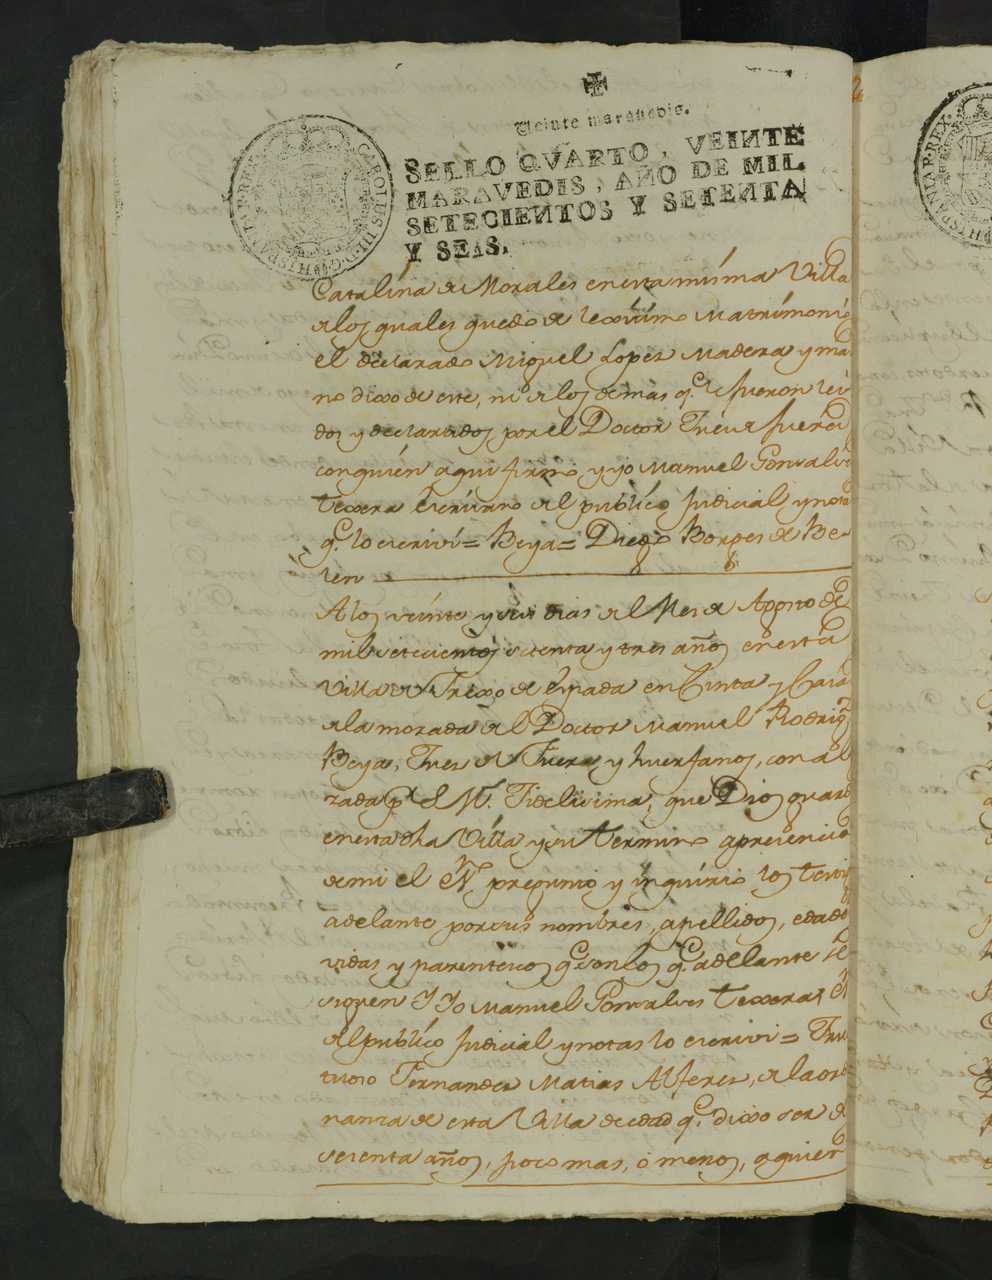 Veinte maravedis.
SELLO QVARTO, VEINTE
MARAVEDIS, AÑO DE MIL
SETECIENTOS Y SETENTA
Y SEIS.
CAROLUS III D G HISPANIAR REX
Catalina de Morales en esta misma Villa
de los quales quedo de lexitimo Matrimonio
el declarado Miguel Lopes Madera y ma
no dixo de este, ni de los demas q.e le fueron lei
dos y declarados por el Doctor
con quien aqui firmo y yo Manuel Gonsalve
Texera escrivano del publico Judicial y nota
q.e lo escrivi = Beya = Diego Borges de Be-
len
A los veinte y seis dias del Mes de Agosto de
mil setecientos setenta y tres años en esta
Villa de Frexo de Espada en Cinta y Casa
de la morada del Doctor Manuel Rodrig.z
Beya, Jues de Fuera y huerfanos, con al
zada p.r S. M. Fidelisima, que Dios guard
en esta dha Villa y su termino a presencia
de mi el pregunto y inquirio los testig
adelante por sus nombres, apellidos, edade
vidas y parentescos q.e son los q.e adelante se
siguen Y Yo Manuel Gonsalves Texera
del publico Judicial y notas lo escrivi = Fru
tuoso Fernandez Matias Alferes, de la orde
nanza de esta Villa de edad q.e dixo ser de
setenta años, poco mas, o menos, a quien
HISPANIAR REX